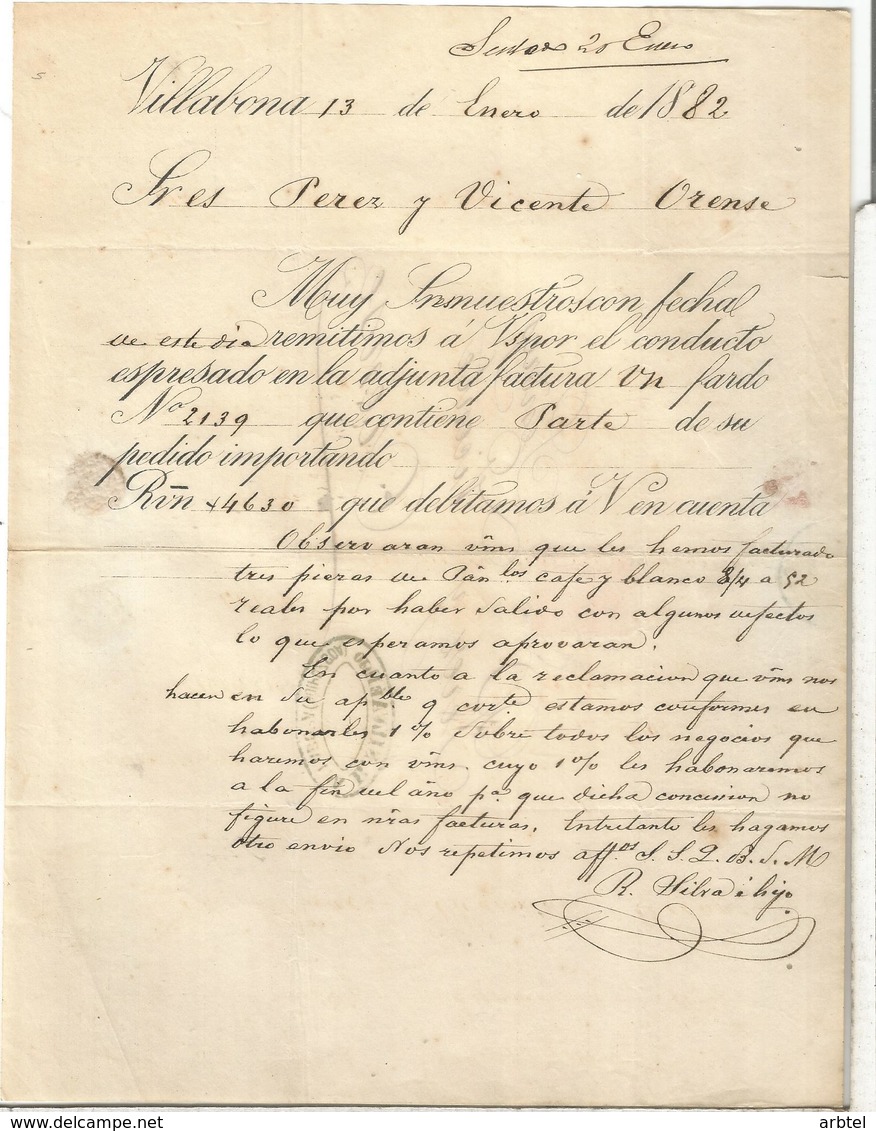 20 Enero
Villabona 13 de Enero de 1882
Sres Perez y Vicente Orense
Muy Sres nuestros con fecha
de este dia remitimos á Vs por el conducto
espresado en la adjunta factura un fardo
No 2139 que contiene Parte de su
pedido importando
Rvn 4630 que debitamos á V en cuenta
Observaran vms que les hemos facturado
tres piezas de los cafe y blanco 8/4 a 52
reales por haber salido con algunos defectos
lo que esperamos aprovaran.
En cuanto a la reclamacion que vms nos
hacen en su apble 9 corte estamos conformes en
habonarles 1% sobre todos los negocios que
haremos con vms. cuyo 1% les habonaremos
a la fin del año pa que dicha concision no
figure en nras facturas. Entretanto les hagamos
otro envio Nos repetimos affos S. S. Q. B. S. M
R. é hijo
arbtel